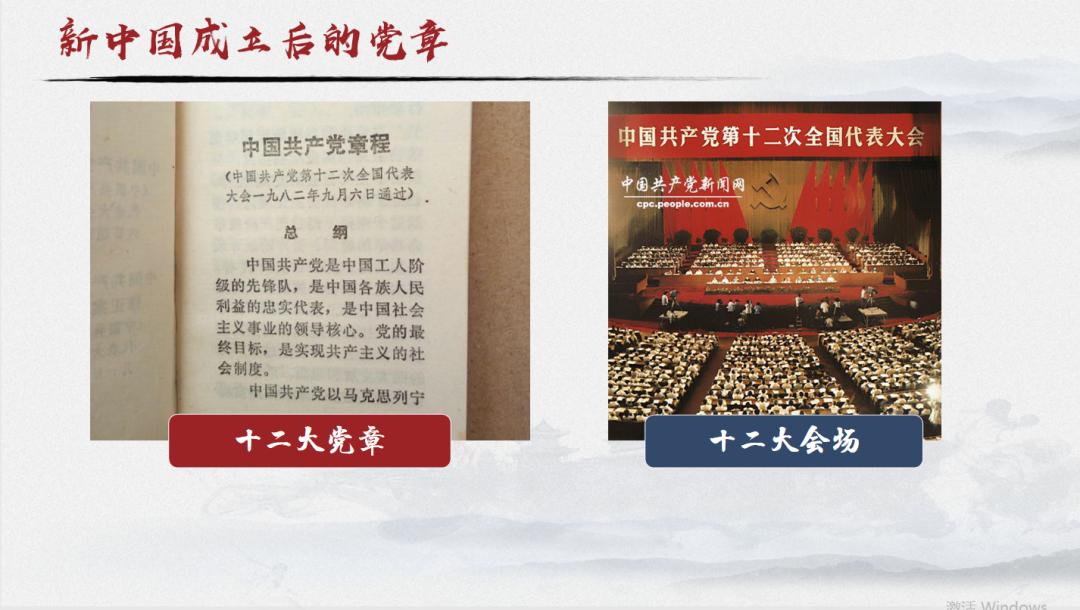 新中国成立后的党章
中国共产党章程
(中国共产党第十二次全国代表
大会一九八二年九月六日通过)
总 纲
中国共产党是中国工人阶
级的先锋队，是中国各族人民
利益的忠实代表，是中国社会
主义事业的领导核心。党的最
终目标，是实现共产主义的社
会制度。
中国共产党以马克思列宁
十二大党章
中国共产党第十二次全国代表大会
中国共产党新闻网
cpc.people.com.cn
十二大会场
激活 Windows